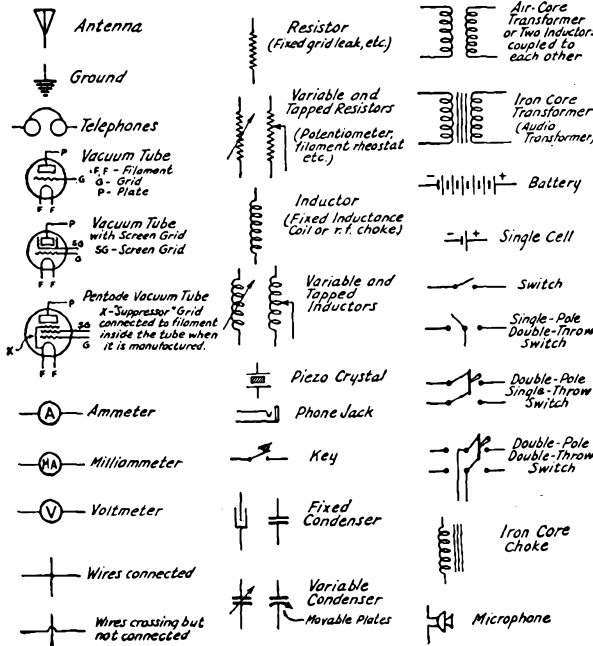 Antenna
Ground
Telephones
P
G
F F
Vacuum Tube
F, F - Filament
G - Grid
P - Plate
P
SG
G
F F
Vacuum Tube
with Screen Grid
SG - Screen Grid
Pentode Vacuum Tube
X-"Suppressor" Grid
connected to filament
inside the tube when
it is manufactured.
P
SG
G
X
F F
A
Ammeter
MA
Milliammeter
V
Voltmeter
Wires connected
Wires crossing but
not connected
Resistor
(Fixed grid leak, etc.)
Variable and
Tapped Resistors
(Potentiometer,
filament rheostat
etc.)
Inductor
(Fixed Inductance
Coil or r.f. choke)
Variable and
Tapped
Inductors
Piezo Crystal
Phone Jack
Key
Fixed
Condenser
Variable
Condenser
Movable Plates
Air-Core
Transformer
or Two Inductors
coupled to
each other
Iron Core
Transformer
(Audio
Transformer)
- + Battery
- + Single Cell
Switch
Single-Pole
Double-Throw
Switch
Double-Pole
Single-Throw
Switch
Double-Pole
Double-Throw
Switch
Iron Core
Choke
Microphone